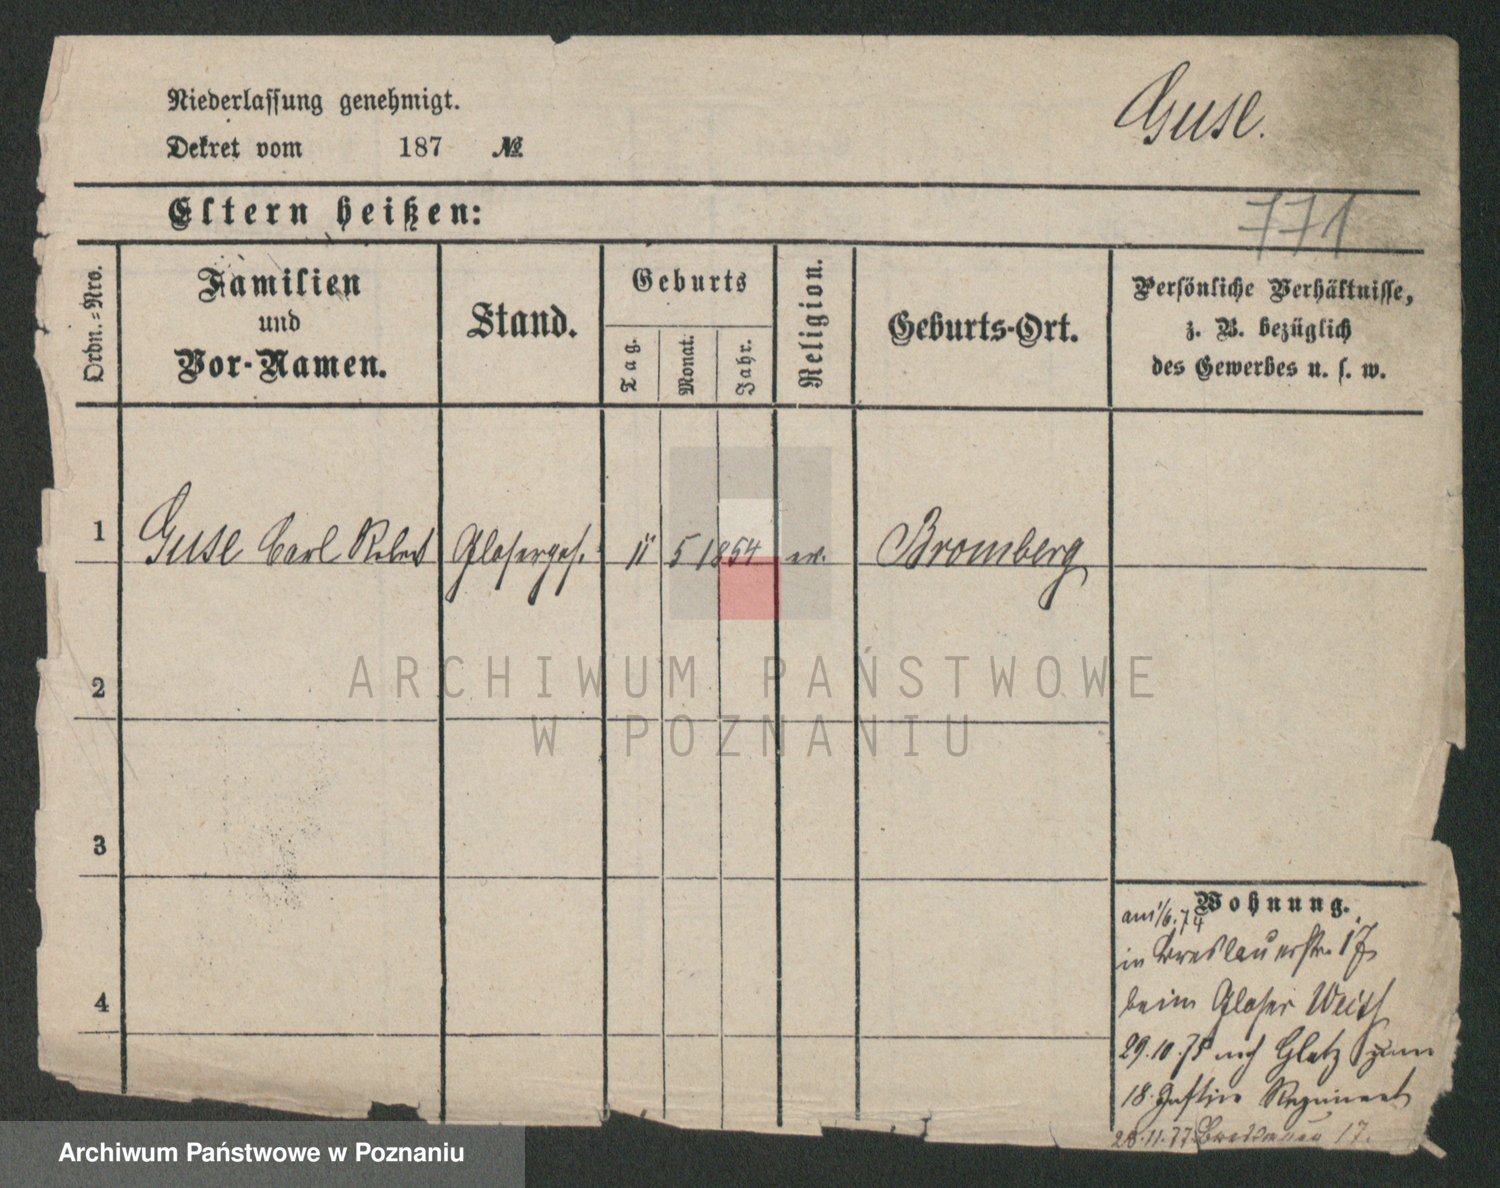 Guse.
Niederlassung genehmigt.
Dekret vom 187 №
Eltern heißen:
771
Ordn.-Nro.
Familien
und
Vor-Namen.
Stand.
Geburts
Tag.
Monat.
Jahr.
Religion.
Geburts-Ort.
Persönliche Verhältnisse,
z. B. bezüglich
des Gewerbes u. s. w.
1 Guse Carl Robert Glasergas. 11 5 1854 ev. Bromberg
2
3
4
Wohnung.
am 1/6.74
in Breslauerstr. 17
beim Glaser Weiss
29.10.75 nach Glatz zum
18. Regiment
23.11.77 Breslauer 17.
ARCHIWUM PAŃSTWOWE
W POZNANIU
Archiwum Państwowe w Poznaniu